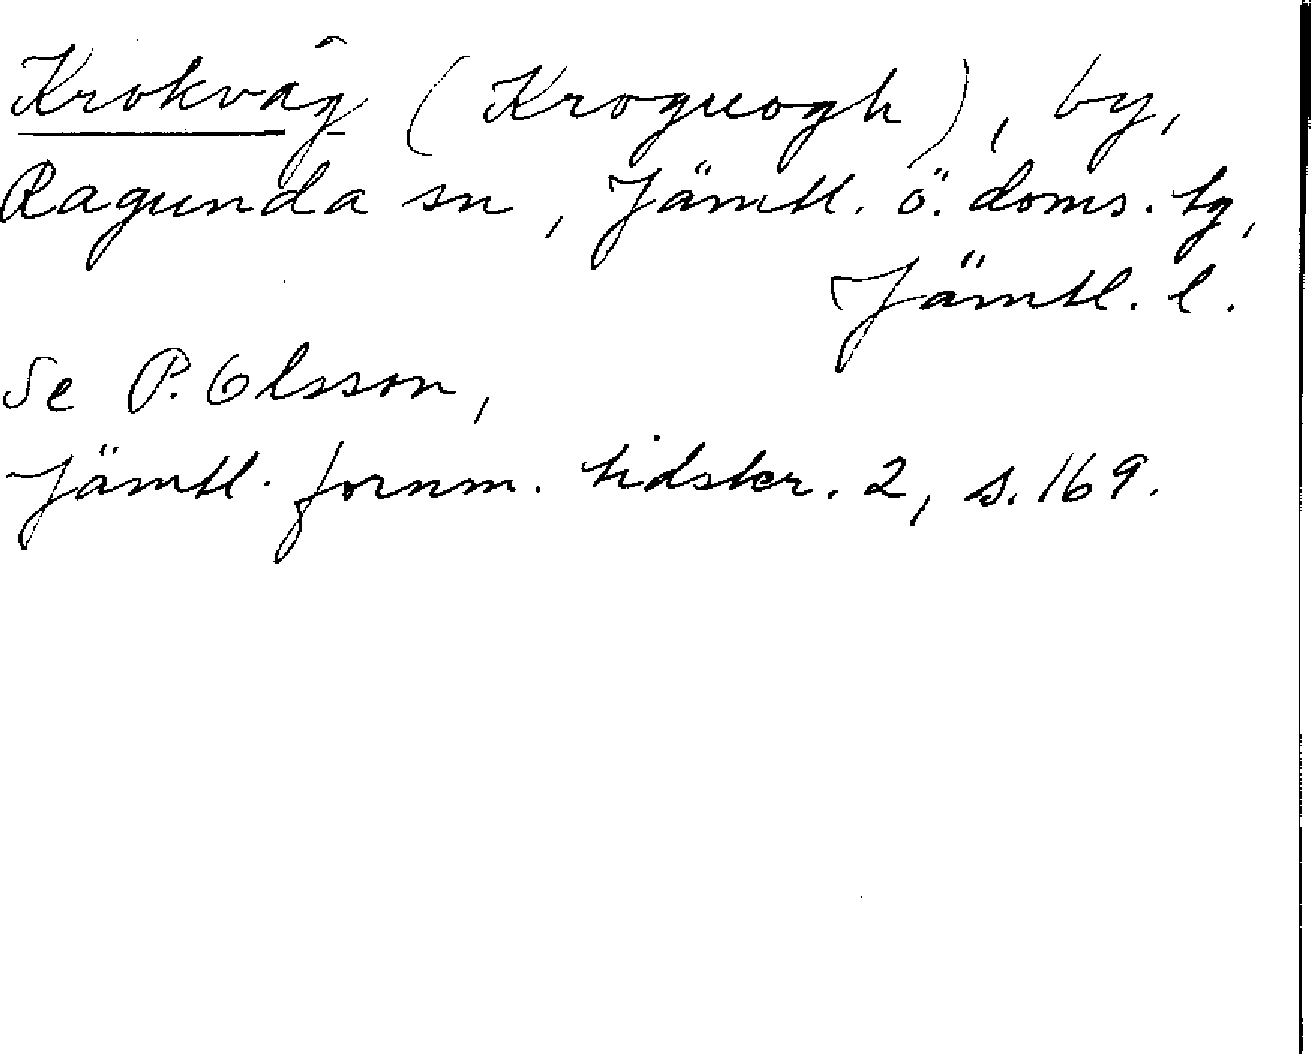 Krokvåg (Kroguogh), by,
Ragunda sn, Jämtl. ö. doms. tg,
Jämtl. l.
Se P. Olsson,
Jämtl. fornm. tidskr. 2, s. 169.